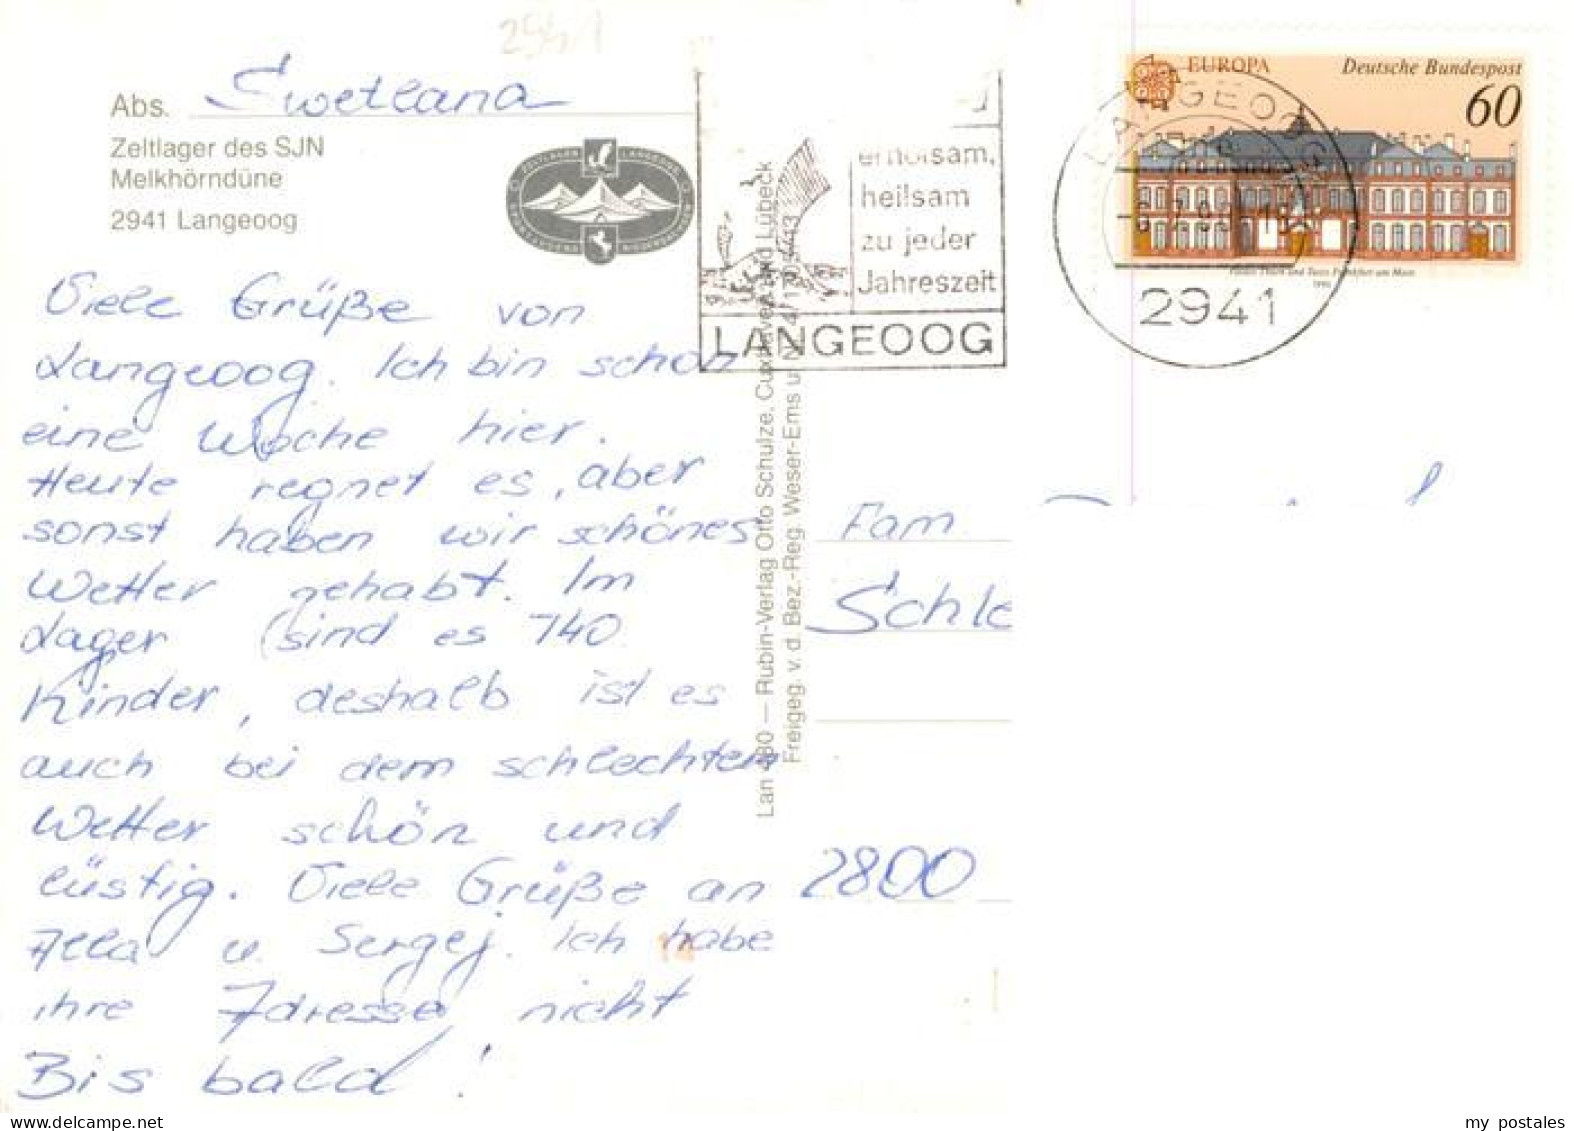 2941
Abs. Swetlana
Zeltlager des SJN
Melkhörndüne
2941 Langeoog
ZELTLAGER LANGEOOG
Viele Grüße von
Langeoog. Ich bin schon
eine Woche hier.
Heute regnet es, aber
sonst haben wir schönes
Wetter gehabt. Im
Lager (sind es 740
Kinder, deshalb ist es
auch bei dem schlechten
Wetter schön und
lüstig. Viele Grüße an
Alla u. Sergej. Ich habe
ihre Adresse nicht
Bis bald!
Lan 480 — Rubin-Verlag Otto Schulze, Cuxhaven und Lübeck
Freigeg. v. d. Bez.-Reg. Weser-Ems u. Nr.
erholsam,
heilsam
zu jeder
Jahreszeit
LANGEOOG
EUROPA
Deutsche Bundespost
60
Palais Thurn und Taxis Frankfurt am Main
1990
LANGEOOG
2941
Fam.
Schle
2800
my postales